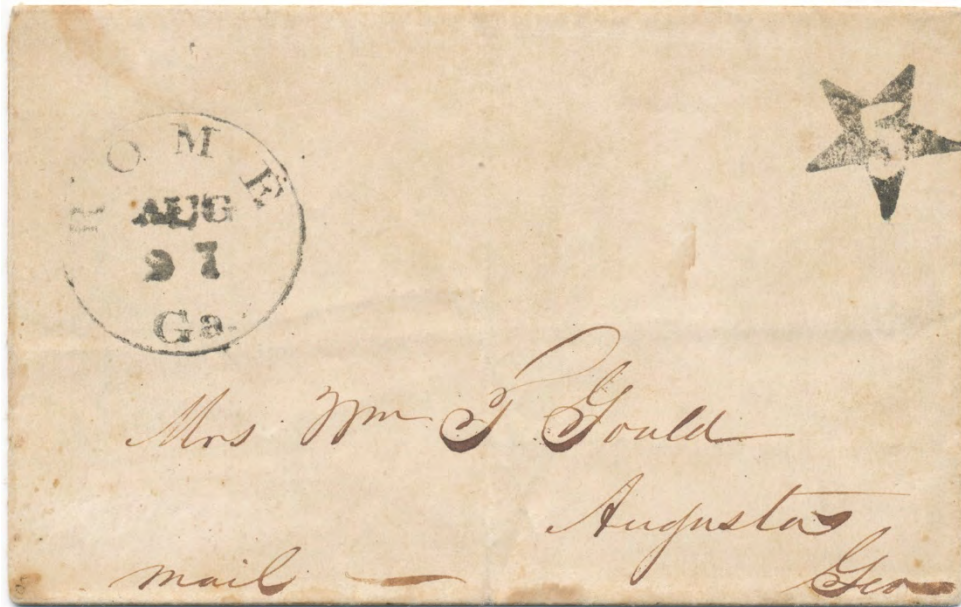 ROME
AUG
27
Ga.
5
Mrs Wm T Gould
Augusta
mail — Geo